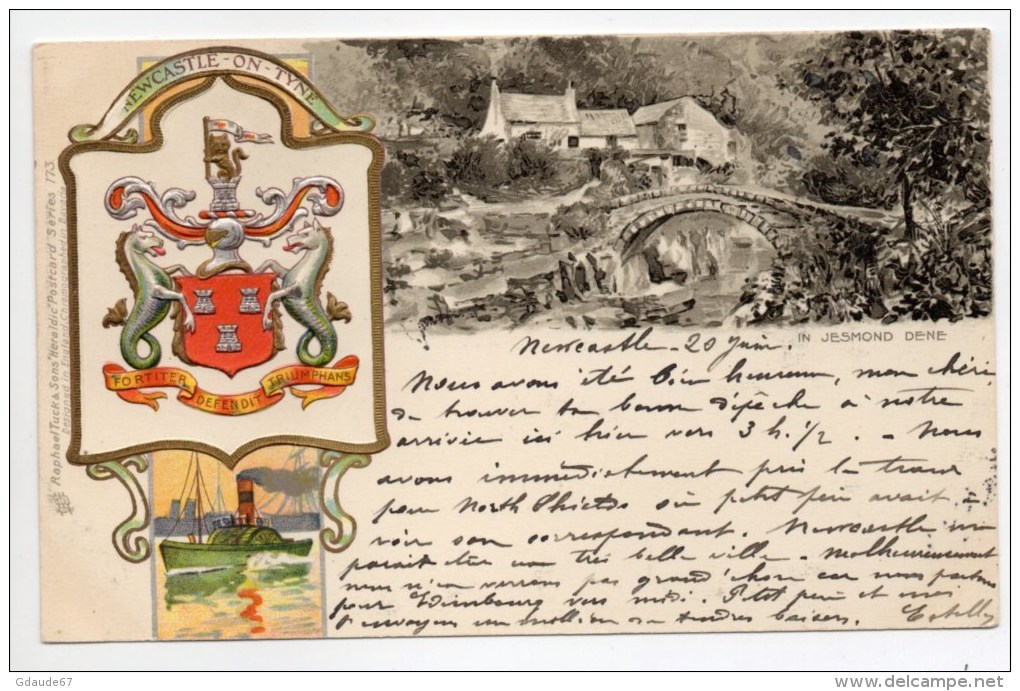 NEWCASTLE-ON-TYNE
Raphael Tuck & Sons' "Heraldic" Postcard Series 173.
Designed in England, Chromographed in Bavaria
FORTITER DEFENDIT TRIUMPHANS
IN JESMOND DENE
Newcastle - 20 juin.
Nous avons été bien heureux, mon chéri
de trouver ta bonne dépêche à notre
arrivée ici hier vers 3 h. 1/2. - Nous
avons immédiatement pris le tram
pour North Shields où petit père avait à
voir son correspondant. Newcastle me
paraît être une très belle ville. Malheureusement
nous n'en verrons pas grand'chose car nous partons
pour Edimbourg vers midi. Petit père et moi
t'envoyons un million de tendres baisers.
© Gdaude67
www.delcampe.net